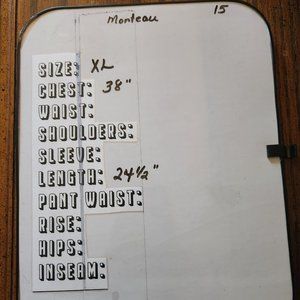 Monteau 15
SIZE: XL
CHEST: 38"
WAIST:
SHOULDERS:
SLEEVE:
LENGTH: 24 1/2"
PANT WAIST:
RISE:
HIPS:
INSEAM: